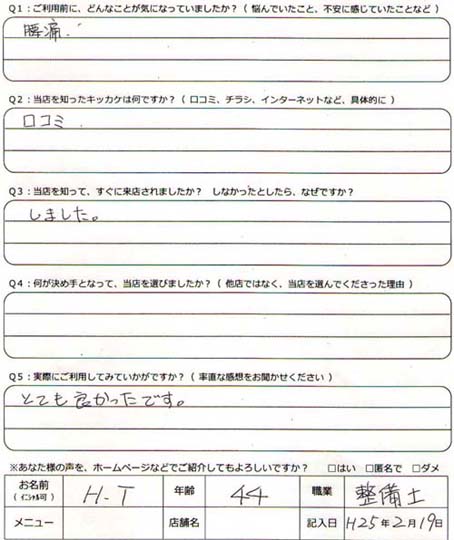 Q1：ご利用前に、どんなことが気になっていましたか？（ 悩んでいたこと、不安に感じていたことなど ）
腰痛．
Q2：当店を知ったキッカケは何ですか？（ 口コミ、チラシ、インターネットなど、具体的に ）
口コミ
Q3：当店を知って、すぐに来店されましたか？ しなかったとしたら、なぜですか？
しました。
Q4：何が決め手となって、当店を選びましたか？（ 他店ではなく、当店を選んでくださった理由 ）
Q5：実際にご利用してみていかがですか？（ 率直な感想をお聞かせください ）
とても良かったです。
※あなた様の声を、ホームページなどでご紹介してもよろしいですか？ □はい □匿名で □ダメ
お名前 （ イニシャル可 ） H-T 年齢 44 職業 整備士
メニュー 店舗名 記入日 H25年2月19日